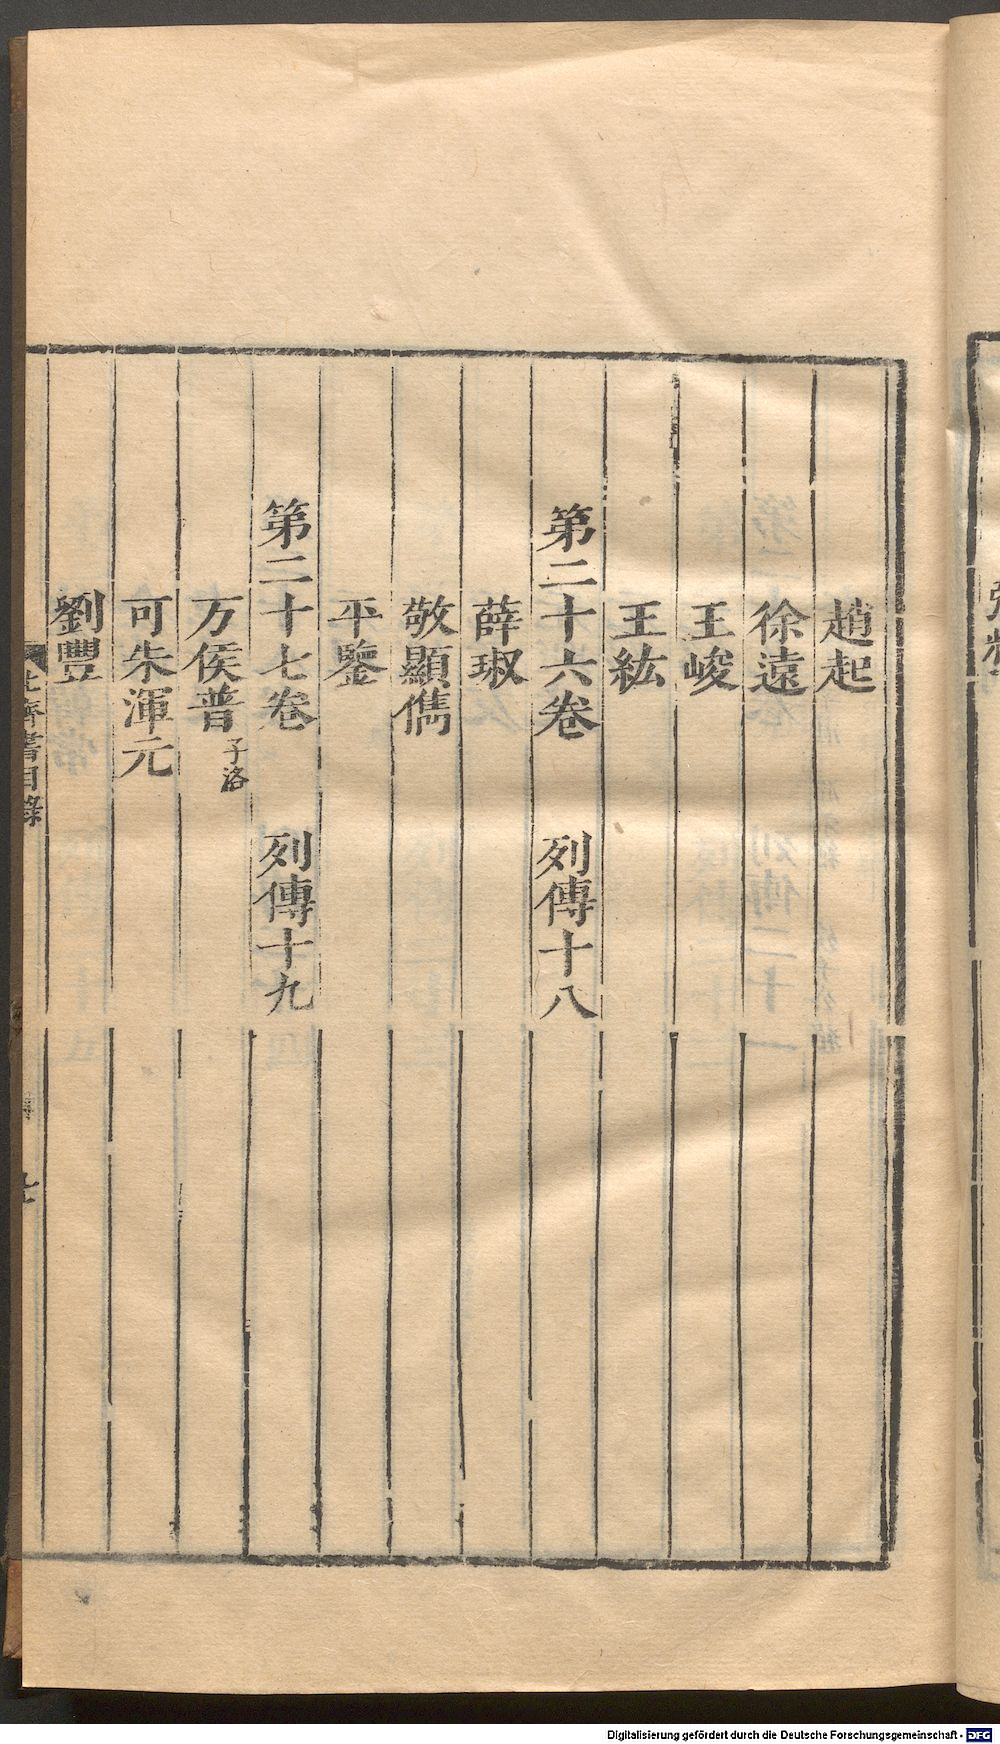 趙起
徐遠
王峻
王紘
第二十六卷　列傳十八
薛琡
敬顯儁
平鑒
第二十七卷　列傳十九
万俟普 子洛
可朱渾元
劉豐
北齊書目錄
Digitalisierung gefördert durch die Deutsche Forschungsgemeinschaft - DFG